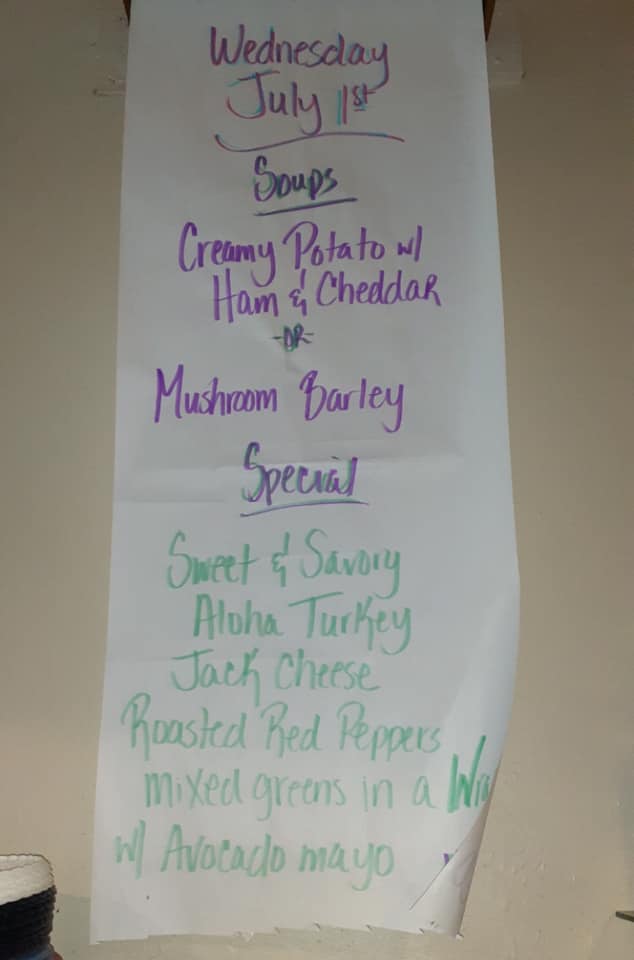 Wednesday
July 1st
Soups
Creamy Potato w/
Ham & Cheddar
-OR-
Mushroom Barley
Special
Sweet & Savory
Aloha Turkey
Jack Cheese
Roasted Red Peppers
mixed greens in a
w/ Avocado mayo